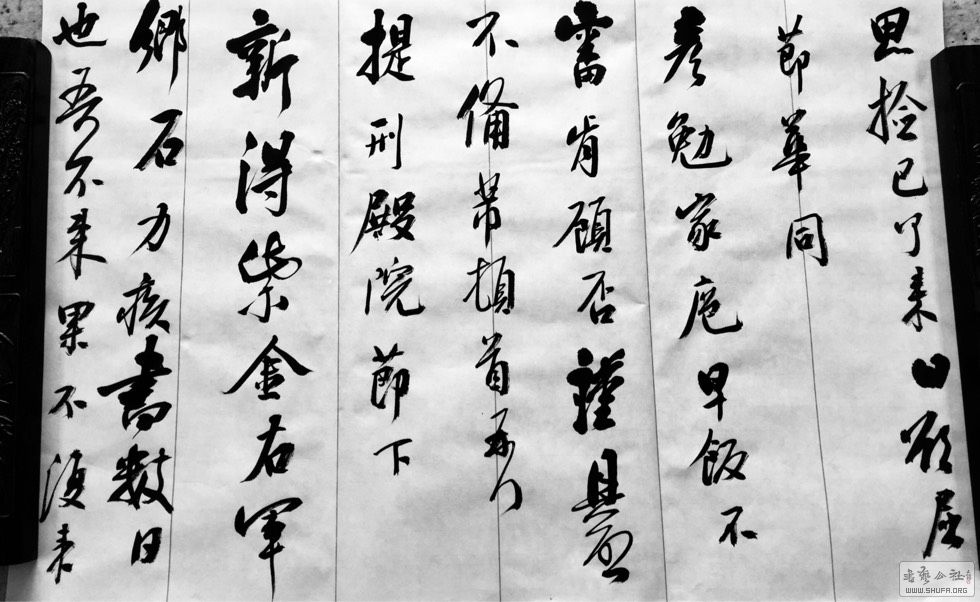 思捡已了来日欲屈
節華同
彦勉家庖早飯不
審肯顧否謹具啓
不備芾頓首再拜
提刑殿院節下
新得紫金右軍
鄉石力疾書數日
也吾不來果不復來
书艺公社
WWW.SHUFA.ORG